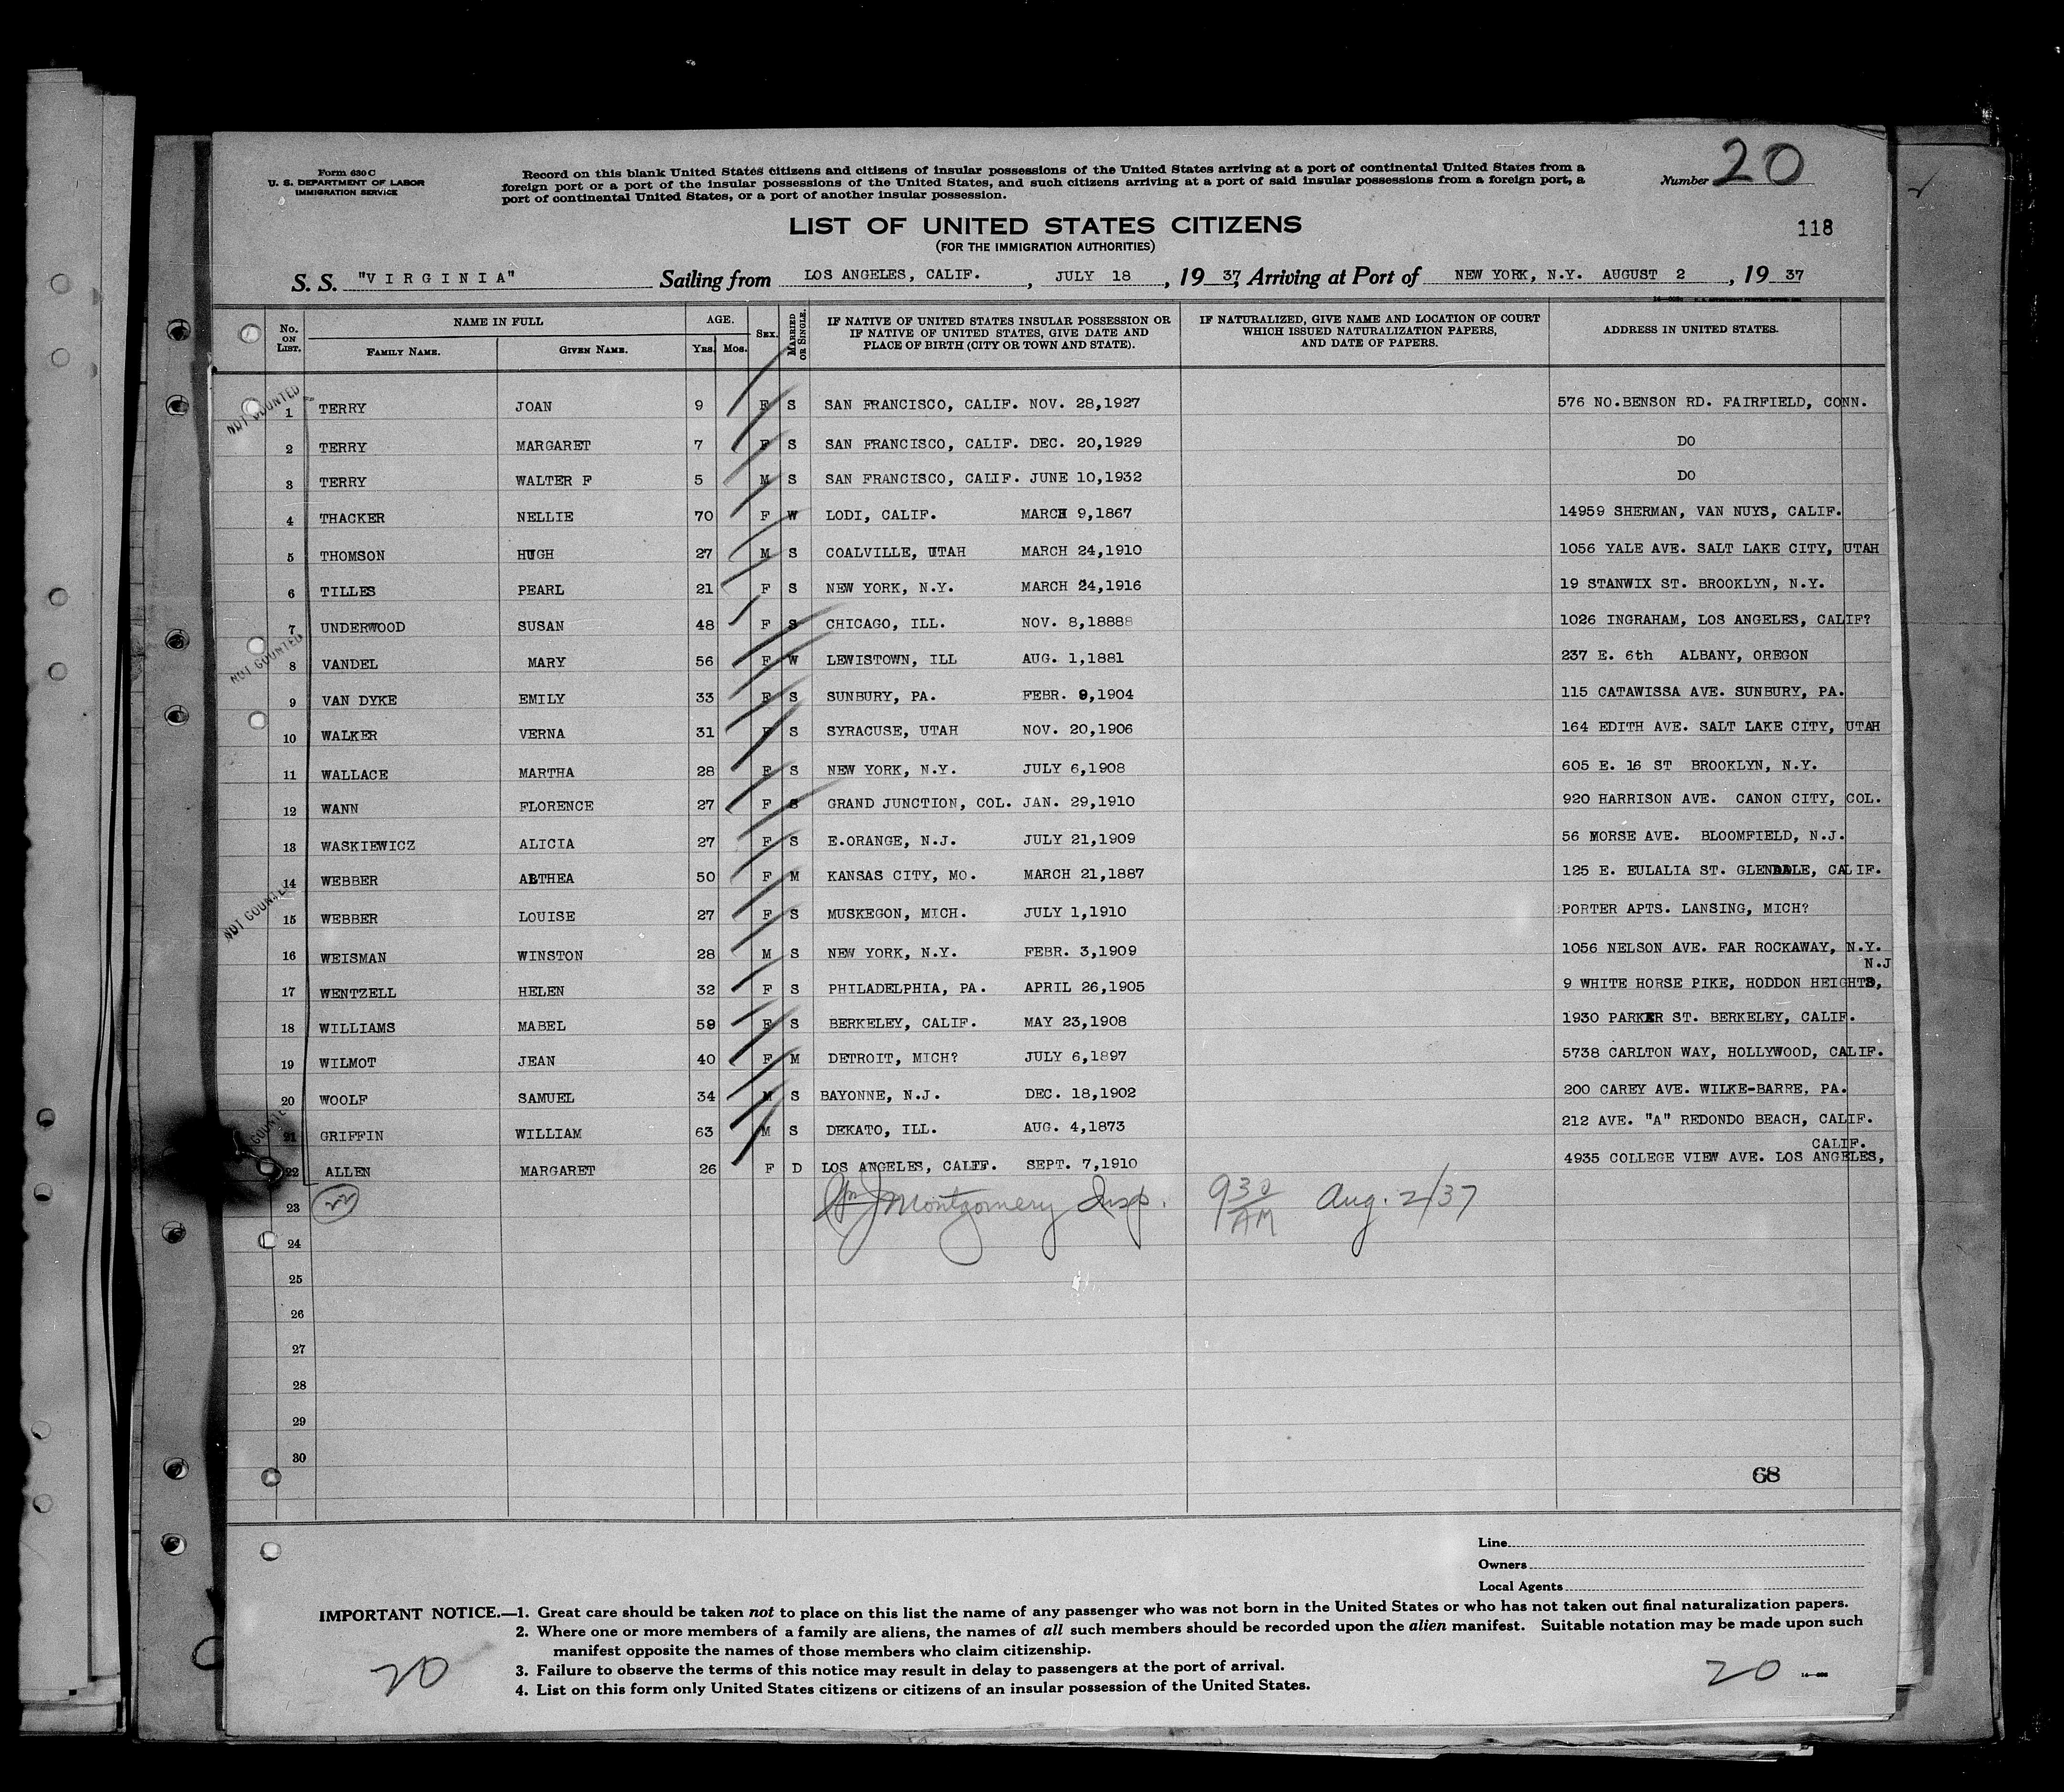 Form 630 C
U. S. DEPARTMENT OF LABOR
IMMIGRATION SERVICE
Record on this blank United States citizens and citizens of insular possessions of the United States arriving at a port of continental United States from a
foreign port or a port of the insular possessions of the United States, and such citizens arriving at a port of said insular possessions from a foreign port, a
port of continental United States, or a port of another insular possession.
Number 20
LIST OF UNITED STATES CITIZENS
118
(FOR THE IMMIGRATION AUTHORITIES)
S. S. "VIRGINIA" Sailing from LOS ANGELES, CALIF., JULY 18, 1937, Arriving at Port of NEW YORK, N.Y. AUGUST 2, 1937
No. ON LIST. NAME IN FULL FAMILY NAME. GIVEN NAME. AGE. YRS. MOS. SEX. MARRIED OR SINGLE. IF NATIVE OF UNITED STATES INSULAR POSSESSION OR IF NATIVE OF UNITED STATES, GIVE DATE AND PLACE OF BIRTH (CITY OR TOWN AND STATE). IF NATURALIZED, GIVE NAME AND LOCATION OF COURT WHICH ISSUED NATURALIZATION PAPERS, AND DATE OF PAPERS. ADDRESS IN UNITED STATES.
NOT COUNTED
1 TERRY JOAN 9 F S SAN FRANCISCO, CALIF. NOV. 28,1927 576 NO.BENSON RD. FAIRFIELD, CONN.
2 TERRY MARGARET 7 F S SAN FRANCISCO, CALIF. DEC. 20,1929 DO
3 TERRY WALTER F 5 M S SAN FRANCISCO, CALIF. JUNE 10,1932 DO
4 THACKER NELLIE 70 F W LODI, CALIF. MARCH 9,1867 14959 SHERMAN, VAN NUYS, CALIF.
5 THOMSON HUGH 27 M S COALVILLE, UTAH MARCH 24,1910 1056 YALE AVE. SALT LAKE CITY, UTAH
6 TILLES PEARL 21 F S NEW YORK, N.Y. MARCH 24,1916 19 STANWIX ST. BROOKLYN, N.Y.
7 UNDERWOOD SUSAN 48 F S CHICAGO, ILL. NOV. 8,18888 1026 INGRAHAM, LOS ANGELES, CALIF?
NOT COUNTED
8 VANDEL MARY 56 F W LEWISTOWN, ILL AUG. 1,1881 237 E. 6th ALBANY, OREGON
9 VAN DYKE EMILY 33 F S SUNBURY, PA. FEBR. 9,1904 115 CATAWISSA AVE. SUNBURY, PA.
10 WALKER VERNA 31 F S SYRACUSE, UTAH NOV. 20,1906 164 EDITH AVE. SALT LAKE CITY, UTAH
11 WALLACE MARTHA 28 F S NEW YORK, N.Y. JULY 6,1908 605 E. 16 ST BROOKLYN, N.Y.
12 WANN FLORENCE 27 F S GRAND JUNCTION, COL. JAN. 29,1910 920 HARRISON AVE. CANON CITY, COL.
13 WASKIEWICZ ALICIA 27 F S E.ORANGE, N.J. JULY 21,1909 56 MORSE AVE. BLOOMFIELD, N.J.
14 WEBBER ALTHEA 50 F M KANSAS CITY, MO. MARCH 21,1887 125 E. EULALIA ST. GLENDALE, CALIF.
NOT COUNTED
15 WEBBER LOUISE 27 F S MUSKEGON, MICH. JULY 1,1910 PORTER APTS. LANSING, MICH?
16 WEISMAN WINSTON 28 M S NEW YORK, N.Y. FEBR. 3,1909 1056 NELSON AVE. FAR ROCKAWAY, N.Y.
N.J
17 WENTZELL HELEN 32 F S PHILADELPHIA, PA. APRIL 26,1905 9 WHITE HORSE PIKE, HODDON HEIGHTS,
18 WILLIAMS MABEL 59 F S BERKELEY, CALIF. MAY 23,1908 1930 PARKER ST. BERKELEY, CALIF.
19 WILMOT JEAN 40 F M DETROIT, MICH? JULY 6,1897 5738 CARLTON WAY, HOLLYWOOD, CALIF.
20 WOOLF SAMUEL 34 M S BAYONNE, N.J. DEC. 18,1902 200 CAREY AVE. WILKE-BARRE, PA.
21 GRIFFIN WILLIAM 63 M S DEKATO, ILL. AUG. 4,1873 212 AVE. "A" REDONDO BEACH, CALIF.
CALIF.
22 ALLEN MARGARET 26 F D LOS ANGELES, CALIF. SEPT. 7,1910 4935 COLLEGE VIEW AVE. LOS ANGELES,
23 22 Montgomery Insp. 9 30 AM Aug. 2/37
24
25
26
27
28
29
30
68
Line
Owners
Local Agents
IMPORTANT NOTICE.—1. Great care should be taken not to place on this list the name of any passenger who was not born in the United States or who has not taken out final naturalization papers.
2. Where one or more members of a family are aliens, the names of all such members should be recorded upon the alien manifest. Suitable notation may be made upon such
manifest opposite the names of those members who claim citizenship.
3. Failure to observe the terms of this notice may result in delay to passengers at the port of arrival.
4. List on this form only United States citizens or citizens of an insular possession of the United States.
20
20